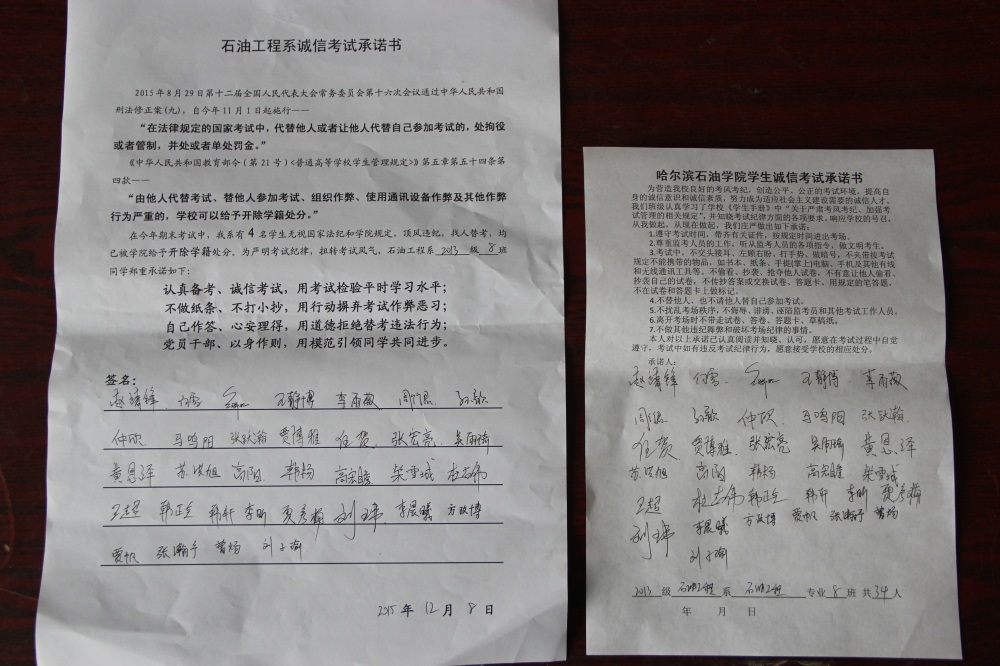 石油工程系诚信考试承诺书
2015年8月29日第十二届全国人民代表大会常务委员会第十六次会议通过中华人民共和国
刑法修正案(九)，自今年11月1日起施行——
“在法律规定的国家考试中，代替他人或者让他人代替自己参加考试的，处拘役
或者管制，并处或者单处罚金。”
《中华人民共和国教育部令（第21号）<普通高等学校学生管理规定>》第五章第五十四条第
四款——
“由他人代替考试、替他人参加考试、组织作弊、使用通讯设备作弊及其他作弊
行为严重的，学校可以给予开除学籍处分。”
在今年期末考试中，我系有4名学生无视国家法纪和学院规定，顶风违纪，找人替考，均
已被学院给予开除学籍处分。为严明考试纪律，扭转考试风气，石油工程系 2013 级 8 班
同学郑重承诺如下：
认真备考、诚信考试，用考试检验平时学习水平；
不做纸条、不打小抄，用行动摒弃考试作弊恶习；
自己作答、心安理得，用道德拒绝替考违法行为；
党员干部、以身作则，用模范引领同学共同进步。
签名：
王静博 李雨薇
仲欣 马鸣阳 张钦瀚 贾博雅 任贺 张宏亮 吴雨琦
黄恩泽 高阳 韩杨 高宏瞻 柴雪城
王超 韩正 韩轩 李昕 贾彦梅 刘玮 李晨曦 方政博
贾帆 张瀚予 曾杨 刘子瑜
2015 年 12 月 8 日
哈尔滨石油学院学生诚信考试承诺书
为营造我校良好的考风考纪，创造公平、公正的考试环境，提高自
身的诚信意识和诚信素质，努力成为适应社会主义建设需要的诚信人才，
我们班级认真学习了学校《学生手册》中“关于严肃考风考纪、加强考
试管理的相关规定”，并知晓考试纪律方面的各项要求，响应学校的号召，
从我做起，从现在做起，我们庄严做出如下承诺：
1.遵守考试时间，带齐有关证件，按规定时间进出考场。
2.尊重监考人员的工作，听从监考人员的各项指令，做文明考生。
3.考试中，不交头接耳、左顾右盼、打手势、做暗号，不夹带按考试
规定不能携带的物品，如书本、纸条、手提(掌上)电脑、手机及其他有线
和无线通讯工具等。不偷看、抄袭、抢夺他人试卷，不有意让他人偷看、
抄袭自己的试卷，不传抄答案或交换试卷、答题卡，用规定的笔答题，
不在试卷和答题卡上做标记。
4.不替他人，也不请他人替自己参加考试。
5.不扰乱考场秩序，不侮辱、诽谤、诬陷监考员和其他考试工作人员。
6.离开考场时不带走试卷、答卷、答题卡、草稿纸。
7.不做其他违纪舞弊和破坏考场纪律的事情。
本人对以上承诺已认真阅读并知晓、认可，愿意在考试过程中自觉
遵守，考试中如有违反考试纪律行为，愿意接受学校的相应处分。
承诺人：
王静博 李雨薇
仲欣 马鸣阳 张钦瀚
任贺 贾博雅 张宏亮 吴雨琦 黄恩泽
高阳 韩杨 高宏瞻 柴雪城
王超 韩正 韩轩 李昕 贾彦梅
刘玮 李晨曦 方政博 贾帆 张瀚予 曾杨
刘子瑜
2013 级 石油工程 系 石油工程 专业 8 班 共 34 人
年 月 日